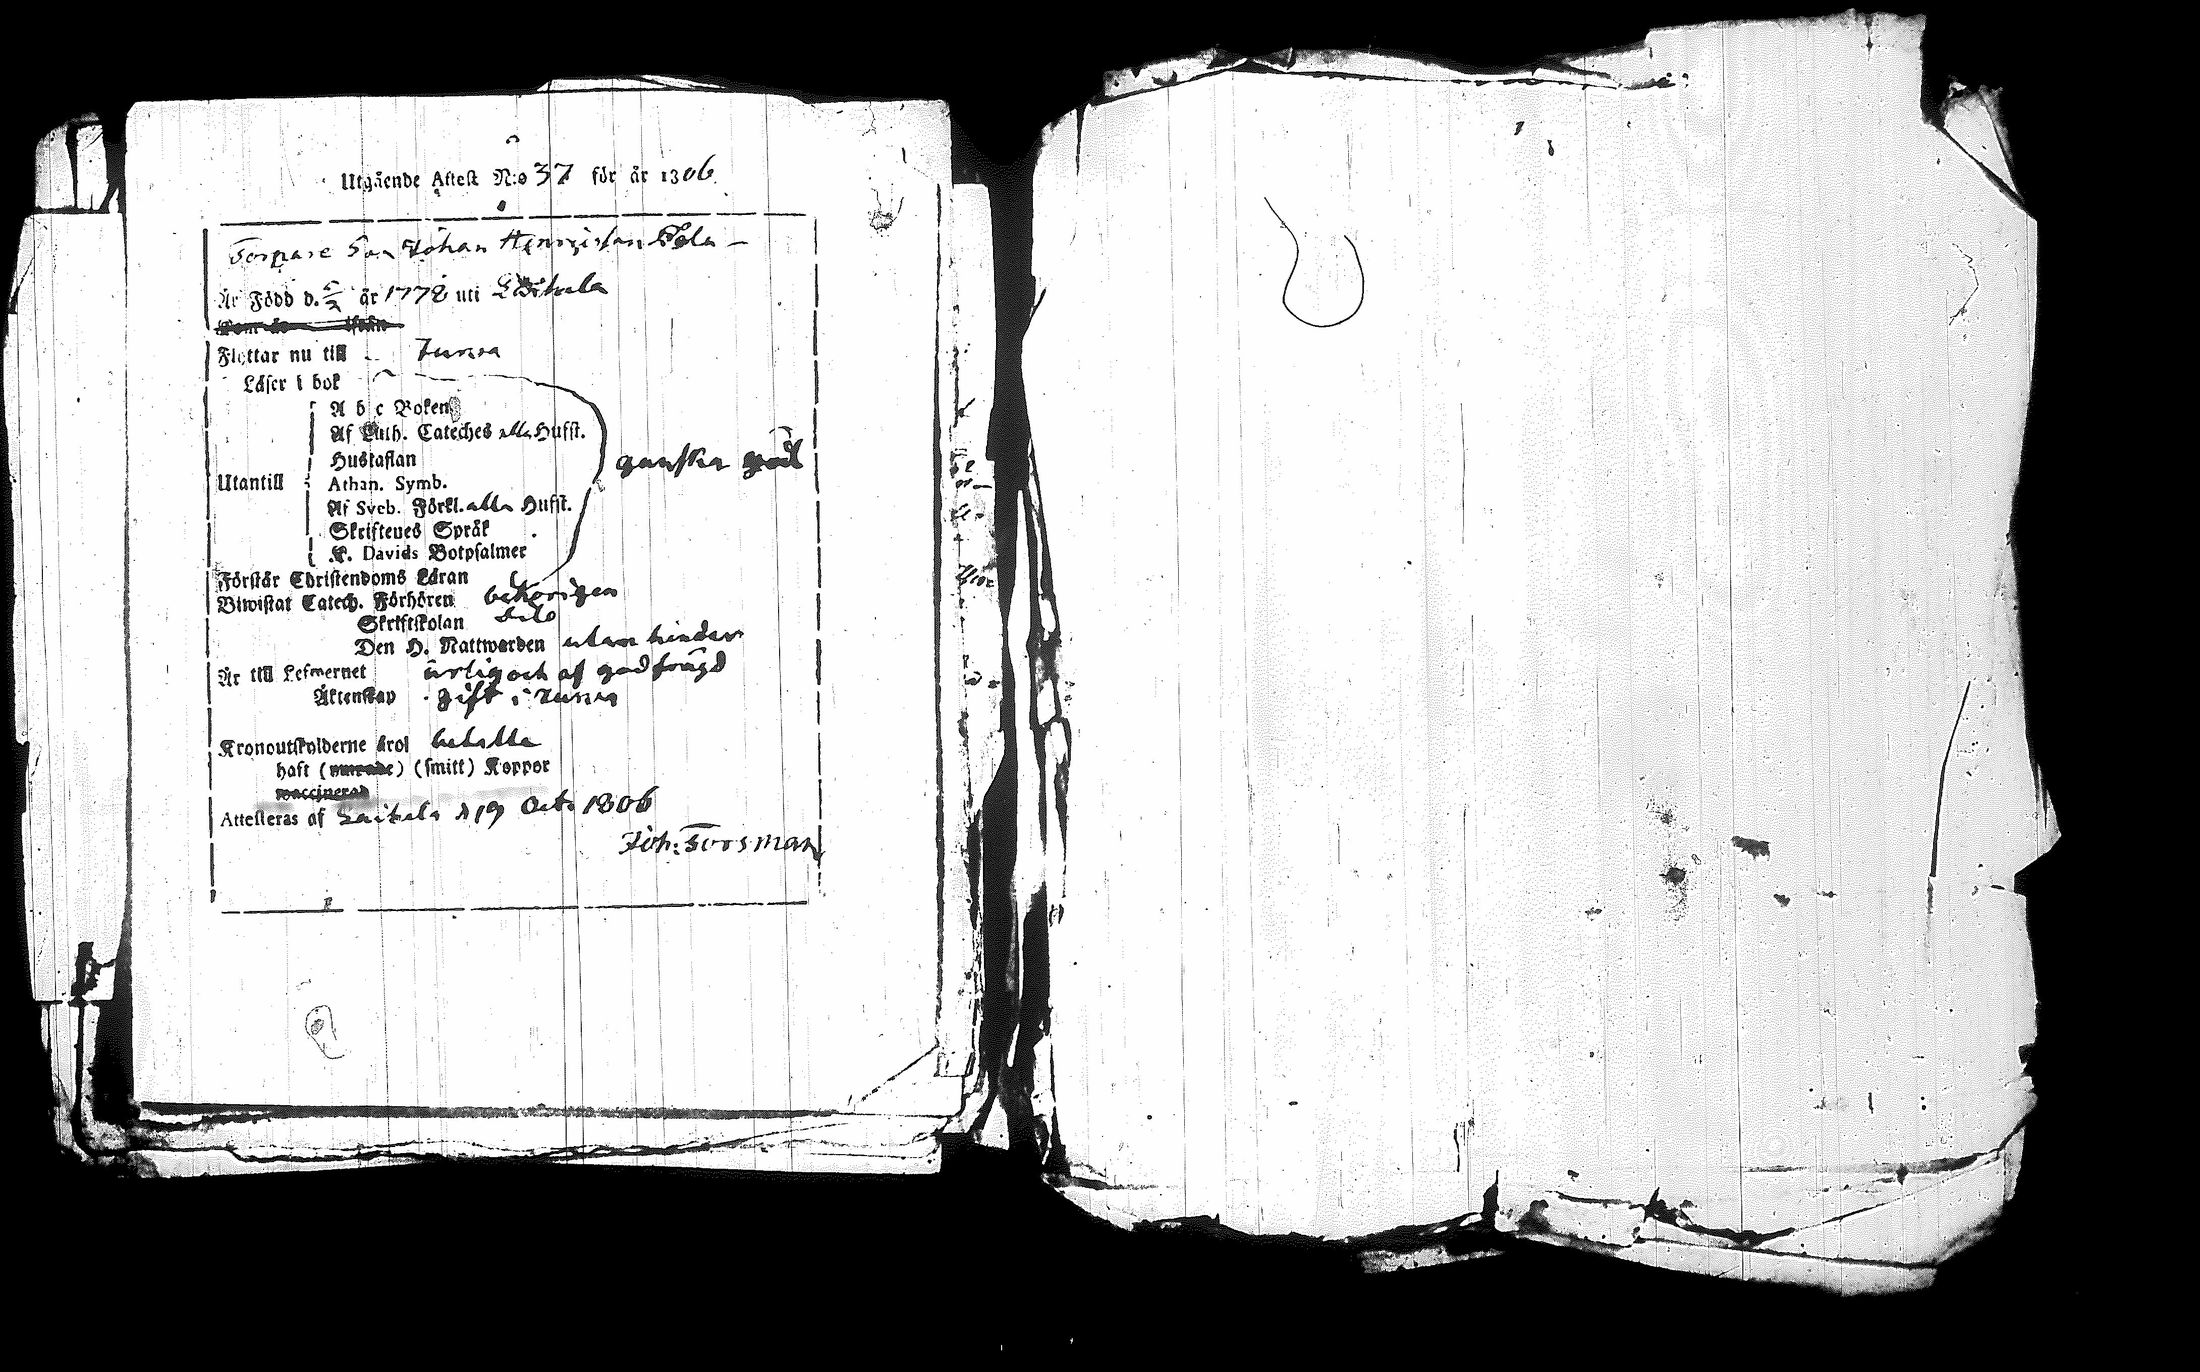 Utgående Attest N:o 37 för år 1806
Torpare Son Johan Henricsson
Är Född d. år 1778 uti Laihela
Kom år ifrån
Flyttar nu till Jurva
Läser i bok
A b c Boken
Af Luth. Cateches alla Hufst.
Hustaflan
ganska
Utantill Athan. Symb.
Af Sveb. Förkl. alla Hufst.
Skriftenes Språk
K. Davids Botpsalmer
Förstår Christendoms Läran
Biwistat Catech. Förhören behörigen
Skriftskolan
Den H. Nattwarden utan hinder
Är till Lefwernet ärlig och af god frägd
Äktenskap gift i Jurva
Kronoutskylderne äro betalte
haft (smitt) Koppor
vaccinerad
Attesteras af Laihela d 19 Octo 1806
Joh: Forsman